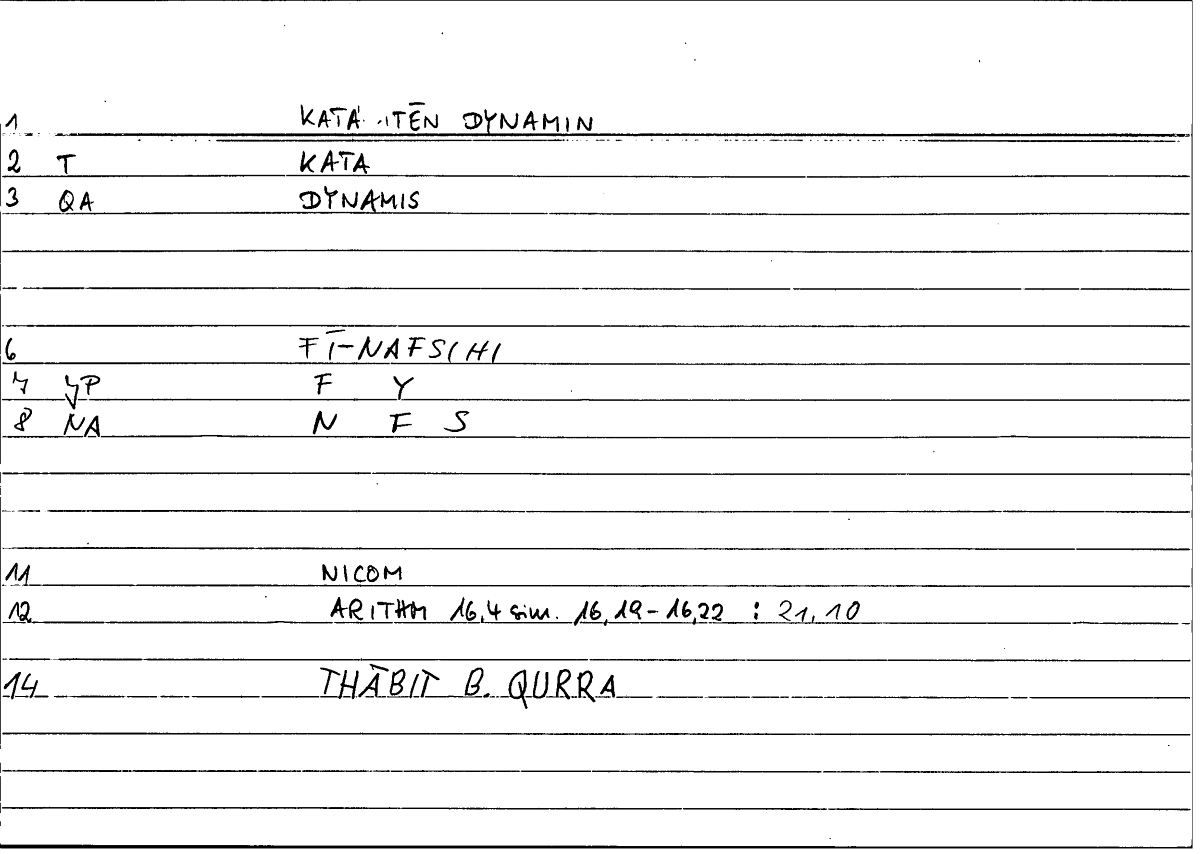 1 KATA TĒN DYNAMIN
2 T KATA
3 QA DYNAMIS
6 FĪ-NAFSIHI
7 JP F Y
8 NA N F S
11 NICOM
12 ARITHM 16,4 sim. 16,19-16,22 : 21,10
14 THĀBIT B. QURRA